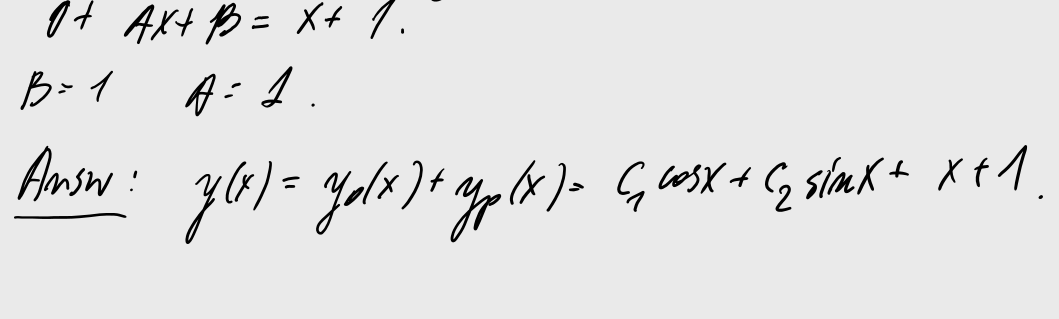 0 + Ax + B = x + 1.
B = 1 A = 1.
Answ: y(x) = y₀(x) + yₚ(x) = C₁ cosx + C₂ sinx + x + 1.